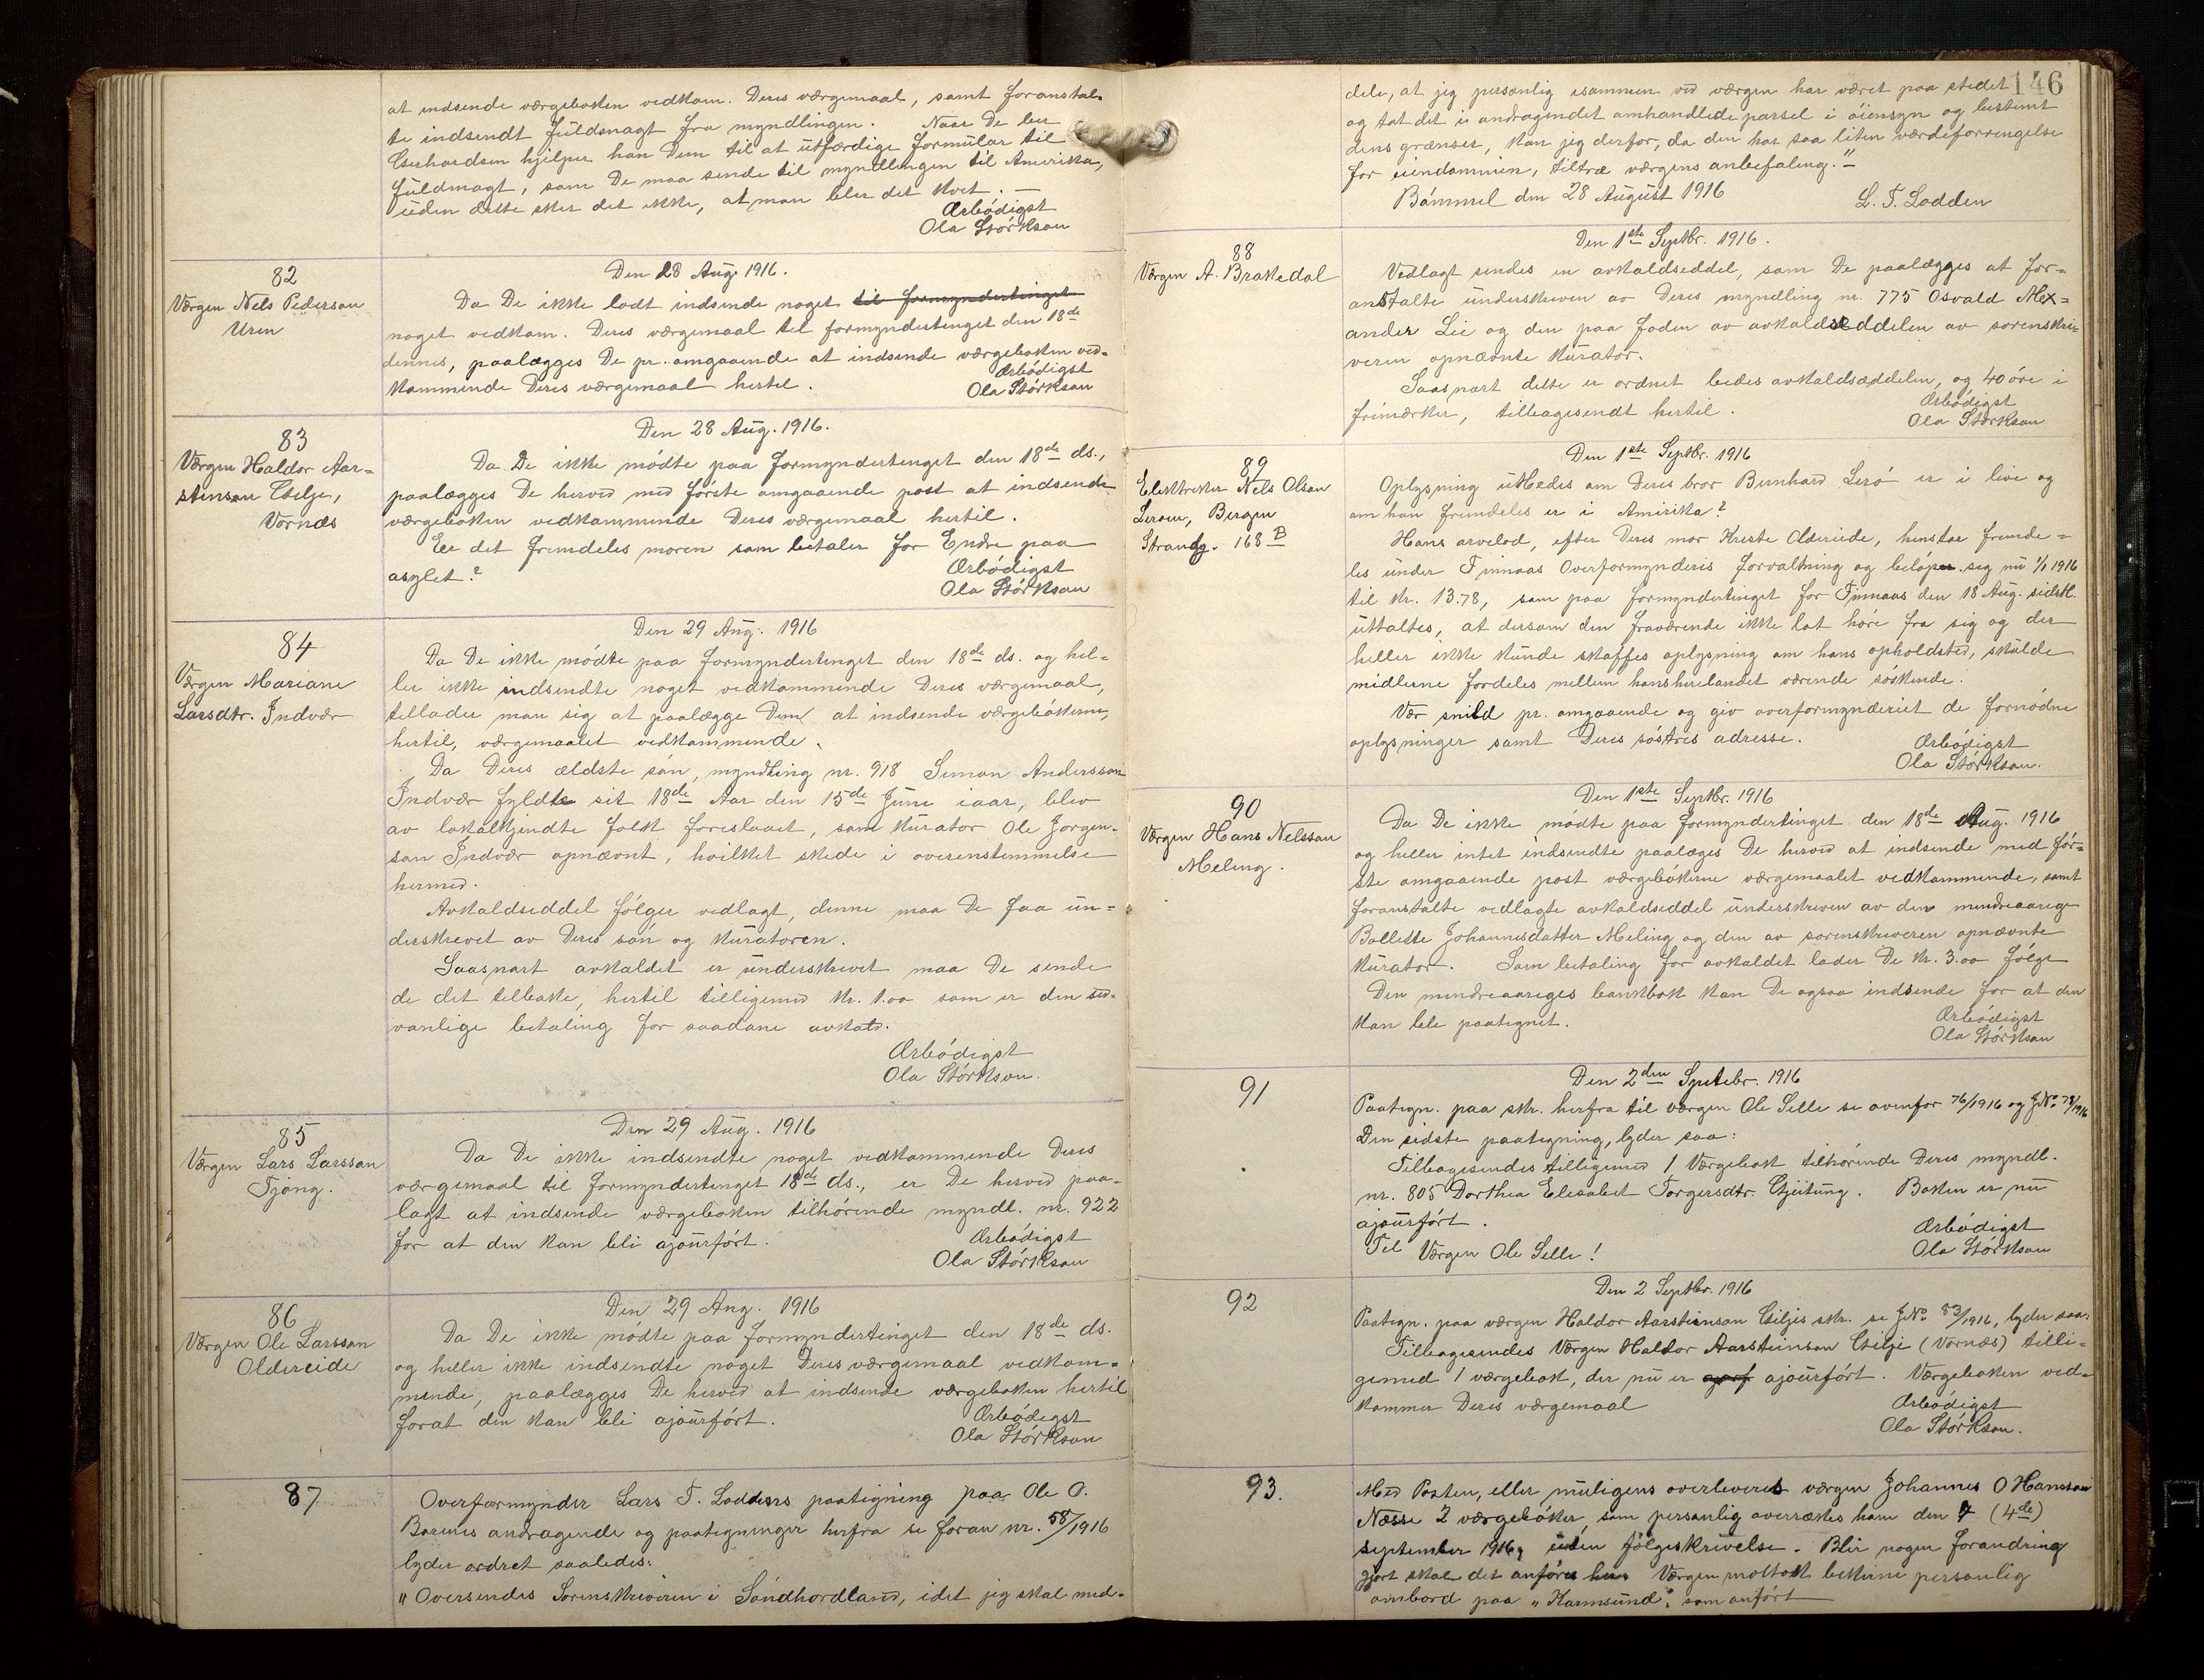 at indsende værgeboken vedkom. Deres værgemaal, samt foranstal-
te indsendt fuldmagt fra myndlingen. Naar De ber
Gerhardsen hjelper han Dem til at utfærdige formular til
fuldmagt, som De maa sende til myndlingen til Amerika,
uden dette sker det ikke, at man blir det kvet. —
Ærbödigst
Ola Störkson
82
Værgen Nels Pederson
Uren
Den 28 Aug. 1916.
Da De ikke lodt indsende noget til formyndertinget
noget vedkom. Deres værgemaal til formyndertinget den 18de
dennes, paalægges De pr. omgaaende at indsende værgeboken ved-
kommende Deres værgemaal hertil.
Ærbödigst
Ola Störkson
83
Værgen Haldor Aar-
stenson Gilje,
Vornæs
Den 28 Aug. 1916.
Da De ikke mödte paa formyndertinget den 18de ds.,
paalægges De herved med förste omgaaende post at indsende
værgeboken vedkommende Deres værgemaal hertil.
Er det fremdeles moren som betaler for Endre paa
asylet?
Ærbödigst
Ola Störkson
84
Værgen Mariane
Larsdtr. Indvær
Den 29 Aug. 1916
Da De ikke mödte paa formyndertinget den 18de ds. og hel-
ler ikke indsendte noget vedkommende Deres værgemaal,
tillader man sig at paalægge Dem at indsende værgebökerne,
hertil, værgemaalet vedkommende.
Da Deres ældste sön, myndling nr. 918 Simon Andersson
Indvær fyldte sit 18de Aar den 15de Juni iaar, blev
av lokalkjendte folk foreslaaet, som kurator Ole Jorgen-
son Indvær opnævnt, hvilket skede i overenstemmelse
hermed.
Avkaldseddel fölger vedlagt, denne maa De faa un-
derskrevet av Deres sön og kuratoren.
Saasnart avkaldet er underskrevet maa De sende
de det tilbake, hertil tilligemed kr. 1.00 som er den sed-
vanlige betaling for saadane avkald.
Ærbödigst
Ola Störkson.
85
Værgen Lars Larsson
Tjong.
Den 29 Aug. 1916
Da De ikke indsendte noget vedkommende Deres
værgemaal til formyndertinget 18de ds., er De herved paa-
lagt at indsende værgeboken tilhörende myndl. nr. 922
for at den kan bli ajourfört.
Ærbödigst
Ola Störkson
86
Værgen Ole Larsson
Oldereide
Den 29 Aug. 1916
Da De ikke mödte paa formyndertinget den 18de ds.
og heller ikke indsendte noget Deres værgemaal vedkom-
mende, paalægges De herved at indsende værgeboken hertil
forat den kan bli ajourfört.
Ærbödigst
Ola Störkson
87
Overformynder Lars T. Loddens paategning paa Ole O.
Borenes andragende og paategninger herfra se foran nr. 58/1916
lyder ordret saaledes:
"Oversendes Sorenskriveren i Söndhordland, idet jeg skal med-
146
dele, at jeg personlig isammen ved værgen har været paa stedet
og tat det i andragendet omhandlede parsel i öiensyn og bestemt
dens grænser, kan jeg derfor, da den har saa liten værdiforringelse
for eiendommen, tiltræ værgens anbefaling."
Bömmel den 28 August 1916
L. T. Lodden
88
Værgen A. Brakedal
Den 1ste Septbr. 1916.
Vedlagt sendes en avkaldseddel, som De paalægges at for-
anstalte underskreven av Deres myndling nr. 775 Osvald Alex-
ander Lie og den paa foden av avkaldseddelen av sorenskri-
veren opnævnte kurator.
Saasnart dette er ordnet bedes avkaldsæddelen, og 40 öre i
frimærker, tilbagesendt hertil.
Ærbödigst
Ola Störkson
89
Elektriker Nels Olson
Leröen, Bergen
Strandg. 168 B
Den 1ste Septbr. 1916
Oplysning utbedes om Deres bror Bernhard Lerö er i live og
om han fremdeles er i Amirika?
Hans arvelod, efter Deres mor Kirste Oldereide, henstar fremde-
les under Finnaas Overformynderis forvaltning og beløper sig nu 1/1 1916
til kr. 13.78, som paa formyndertinget for Finnaas den 18 Aug. sidstl.
uttaltes, at dersom den fraværende ikke lot höre fra sig og der
heller ikke kunde skaffes oplysning om hans opholdsted, skulde
midlerne fordeles mellem hans herilandet værende söskende.
Vær snild pr. omgaaende og giv overformynderiet de fornödne
oplysninger samt Deres söstres adresse.
Ærbödigst
Ola Störkson.
90
Værgen Hans Nelsson
Meling.
Den 1ste Septbr. 1916
Da De ikke mödte paa formyndertinget den 18de Aug. 1916
og heller intet indsendte paalæges De herved at indsende med för-
ste omgaaende post værgebökerne værgemaalet vedkommende, samt
foranstalte vedlagte avkaldseddel underskreven av den mindreaarige
Bollette Johannesdatter Meling og den av sorenskriveren opnævnte
kurator. Som betaling for avkaldet lader De kr. 3.00 fölge
Den mindreaariges bankbok kan De ogsaa indsende for at den
kan bli paategnet.
Ærbödigst
Ola Störkson
91
Den 2den Septebr. 1916
Paategn. paa skr. herfra til værgen Ole Selle se ovenfor 76/1916 og J.No. 78/1916
Den sidste paategning, lyder saa:
Tilbagesendes tilligemed 1 Værgebok tilhörende Deres myndl.
nr. 805 Dorthea Elesabet Torgersdtr. Gjeitung. Boken er nu
ajourfört.
Ærbödigst
Ola Störkson
Til Værgen Ole Selle!
92
Den 2 Septbr. 1916
Paategn. paa værgen Haldor Aarsteinson Giljes skr. se J.No. 83/1916, lyder saa:
Tilbagesendes Værgen Haldor Aarsteinson Gilje (Vornæs) tilli-
gemed 1 værgebok, der nu er ajourfört. Værgeboken ved-
kommer Deres værgemaal
Ærbödigst
Ola Störkson.
93.
Med Posten, eller muligens overleveres værgen Johannes O Hansson
Næsse 2 værgeböker, som personlig overrækes ham den 4 (4de)
september 1916, uden fölgeskrivelse. Blir nogen forandring
gjort skal det anföres her. Værgen mottokt bökerne personlig
ombord paa "Karmsund", som anfört